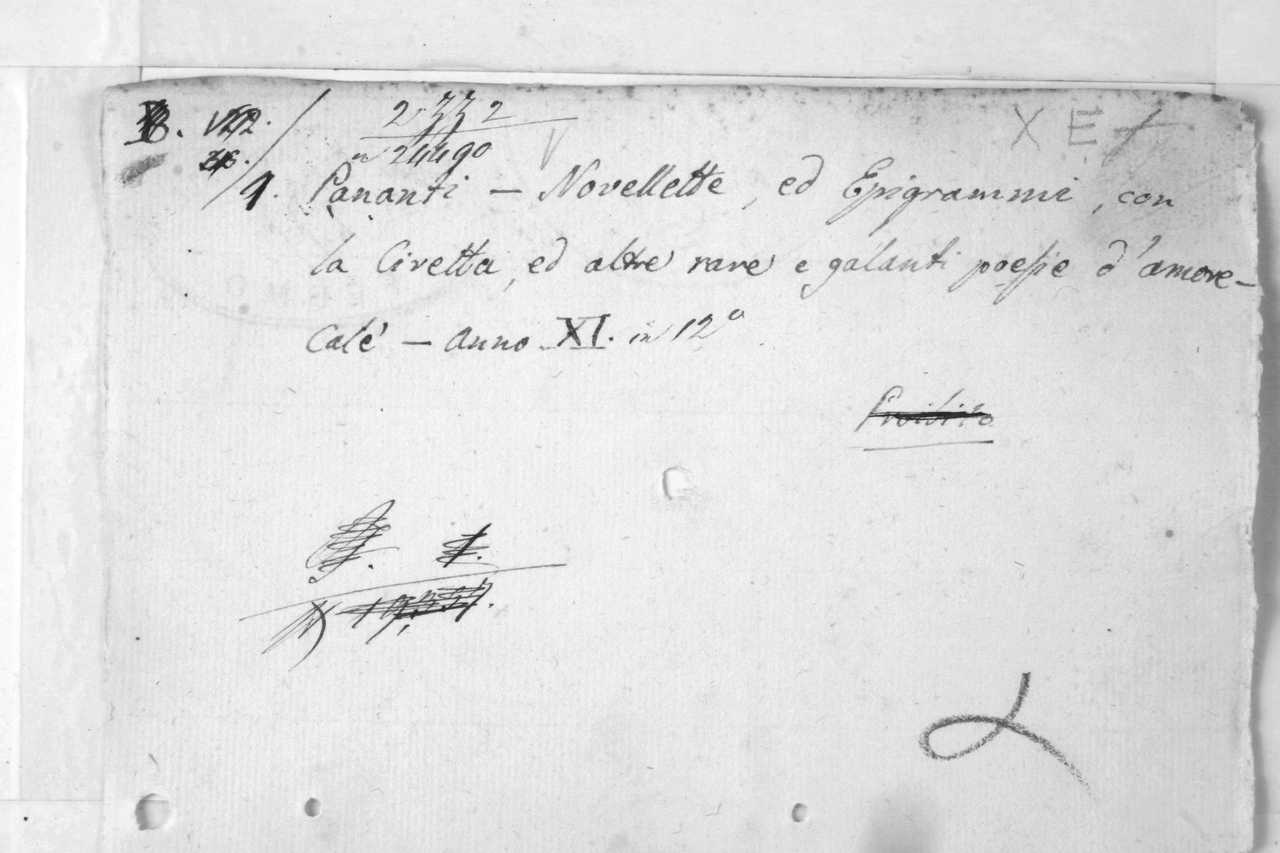 2332
24490
X E
1. Pananti — Novellette, ed Epigrammi, con
la Civetta, ed altre rare e galanti poesie d'amore —
Calé — anno XI. in 12º
Proibito